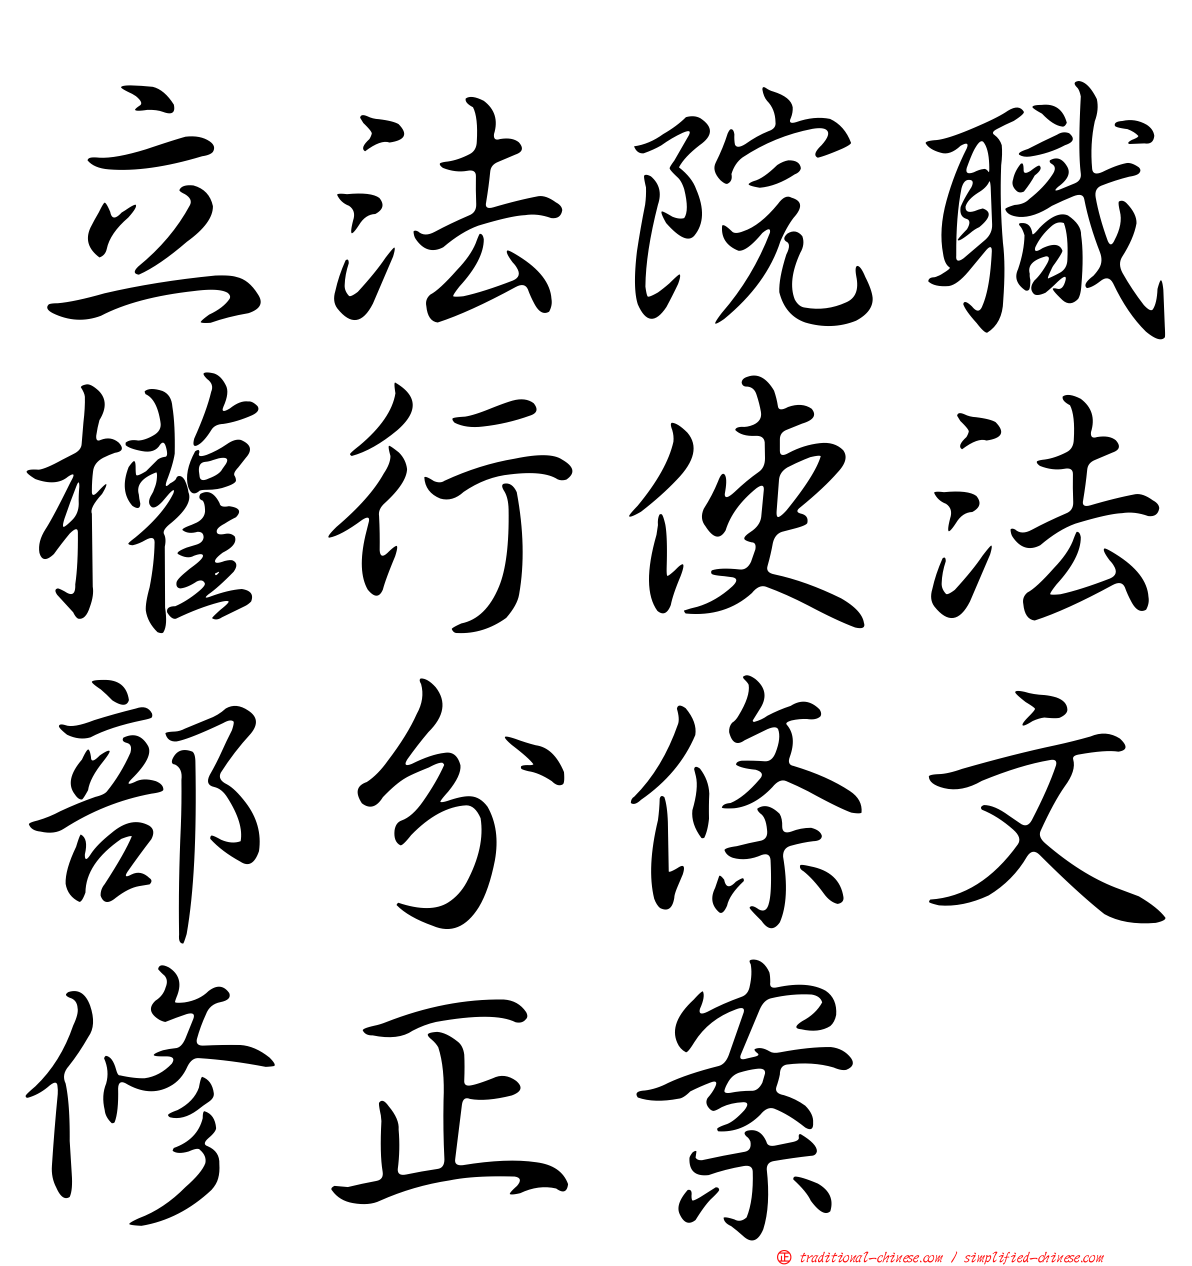 立法院職
權行使法
部分條文
修正案
正 traditional-chinese.com / simplified-chinese.com